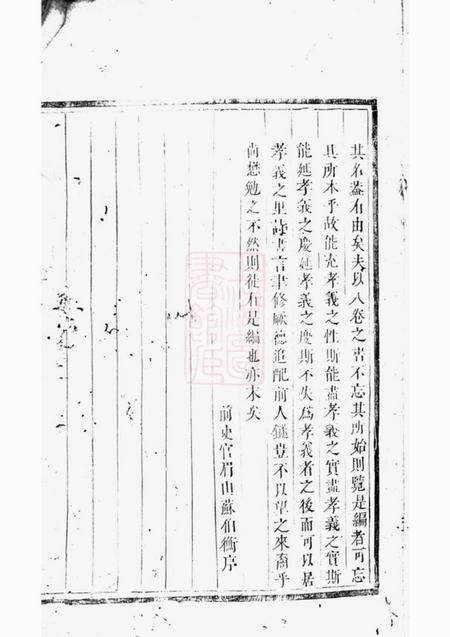 其名蓋有由矣夫以八卷之書不忘其所始則覽是編者可忘
其所本乎故能充孝義之性斯能盡孝義之實盡孝義之實斯
能延孝義之慶延孝義之慶斯不失為孝義者之後而可以居
孝義之里詩書言聿修厥德追配前人鎡豈不以望之來裔乎
尚懋勉之不然則徒有是編也亦末矣
前史官眉山蘇伯衡序